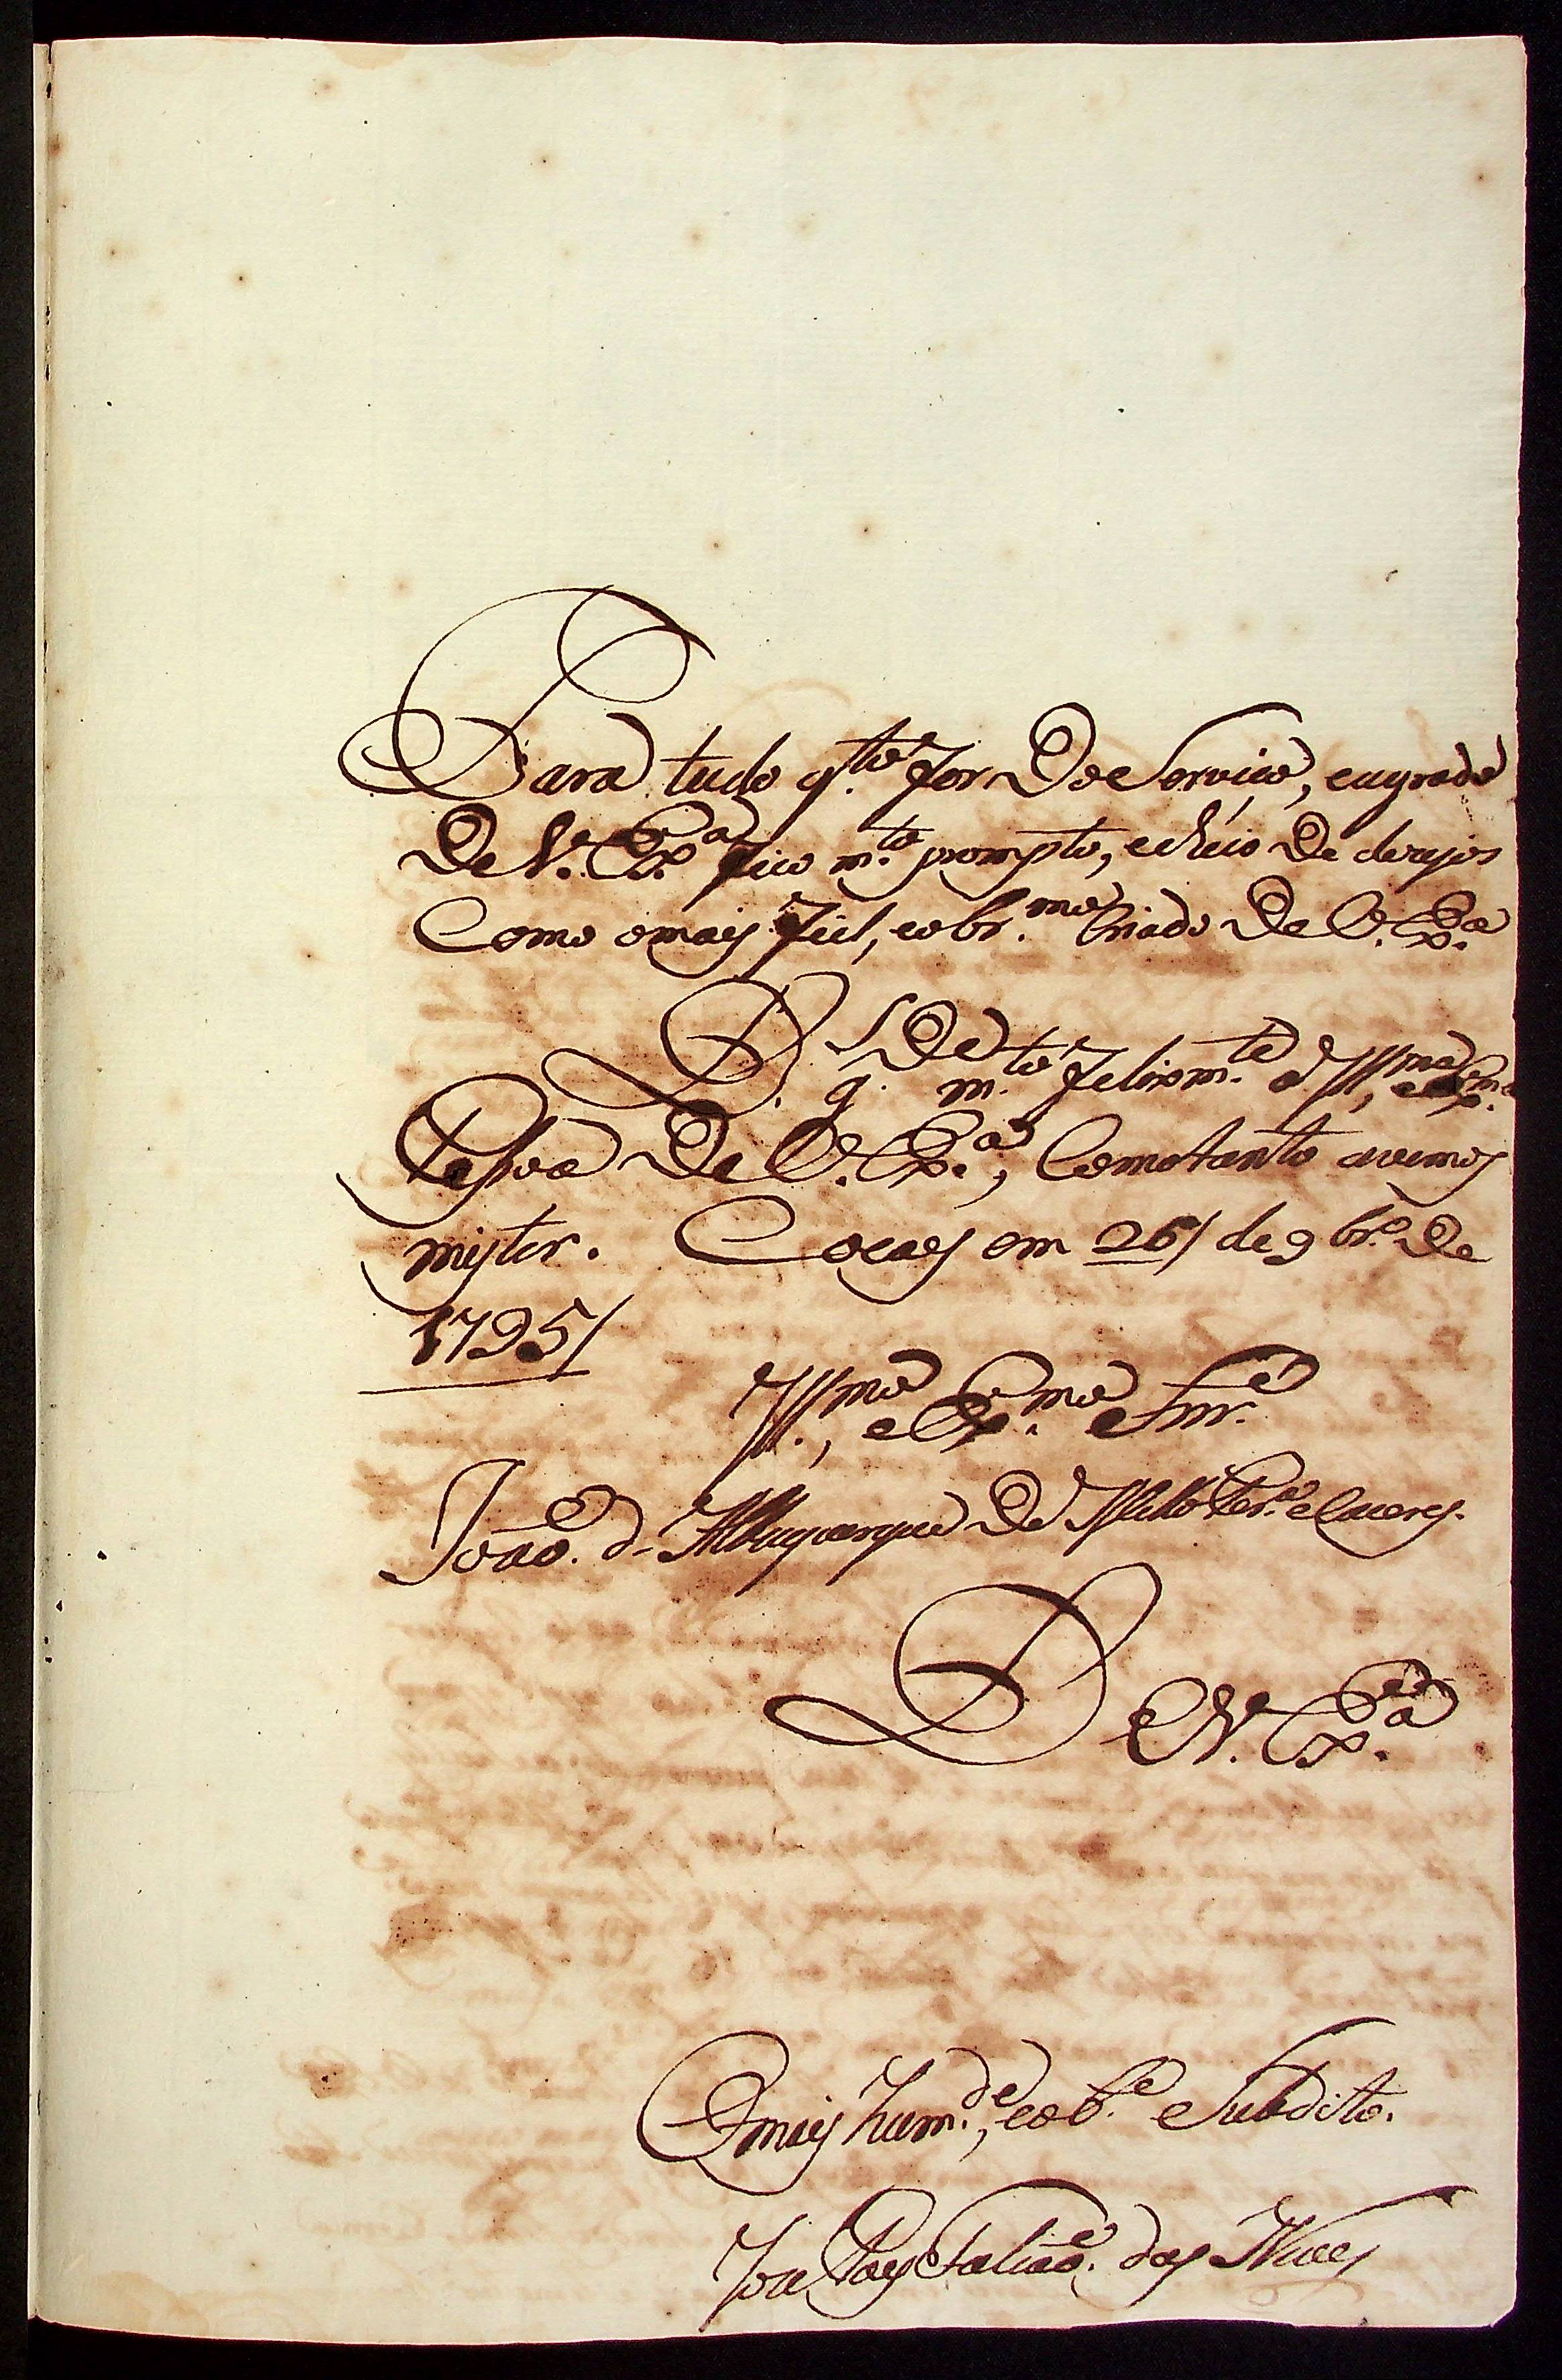 Para tudo q.to for Do Serviço, eagrado
De V. Ex.a fico m.to prompto, echeio De dezejos
Como omais fiel, eobr.mo Criado De V. Ex.a
D.s g.De m.to felixm.te a Ill.ma, eEx.ma
Pessoa De V. Ex.a, Comotanto avemos
mister. Cocaes em 26/ de 9br.o De
1795/
Ill.mo, e Ex.mo Snr.
João. d- Albuquerque De Mello Per.a eCaceres.
De V. Ex.a
Omais hum.de, eob.e Subdito.
Joze Paes Falcão. das Neves